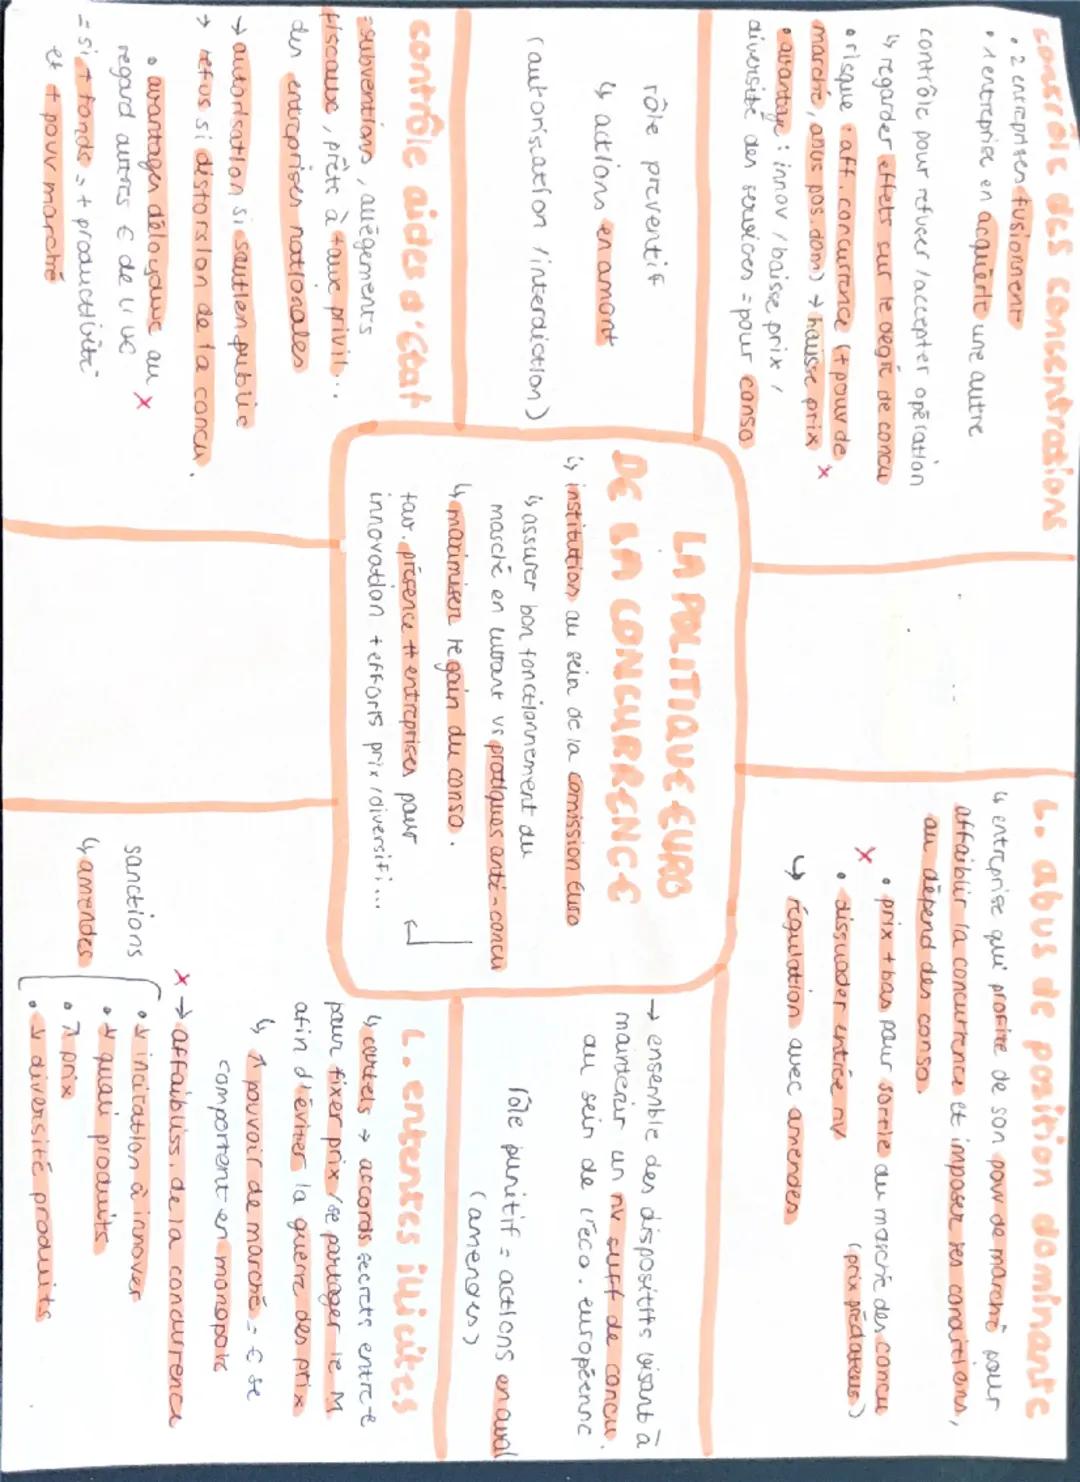 LA POLITIQUE EURO
DE LA CONCURRENCE
↳ institution au sein de la comission Euro
↳ assurer bon fonctionnement du
marché en luttant vs pratiques anti-concu
↳ maximiser le gain du conso.
fav. présence # entreprises pour
innovation + efforts prix / diversifi...
→ ensemble des dispositifs visant à
maintenir un nv suff de concu.
au sein de l'éco. européenne
contrôle des concentrations
• 2 entreprises fusionnent
• 1 entreprise en acquièrt une autre
contrôle pour refuser / accepter opération
↳ regarder effets sur le degré de concu
• risque : aff. concurrence (+ pouv de
marché, abus pos. dom) → hausse prix x
• avantage : innov / baisse prix /
diversité des services = pour conso
rôle preventif
↳ actions en amont
(autorisation / interdiction)
contrôle aides d'état
= subventions, allégements
fiscaux, prêts à taux privil...
des entreprises nationales
→ autorisation si soutien public
→ refus si distorsion de la concu.
• avantages déloyaux au x
regard autres € de l'UE
= si + fonds, + productivité
et + pouv marché
L. abus de position dominante
↳ entreprise qui profite de son pouv de marché pour
affaiblir la concurrence et imposer ses conditions,
au dépend des conso.
• prix + bas pour sortie du marché des concu
x (prix prédateurs)
• dissuader entrée nv
↳ régulation avec amendes
rôle punitif = actions en aval
(amendes)
L. ententes illicites
↳ cartels → accords secrets entre €
pour fixer prix / se partager le M
afin d'éviter la guerre des prix
↳ ↑ pouvoir de marché = € se
comportent en monopole
x → affaibliss. de la concurrence
• ↓ incitation à innover
• ↓ quali produits
• ↗ prix
• ↓ diversité produits
sanctions
↳ amendes